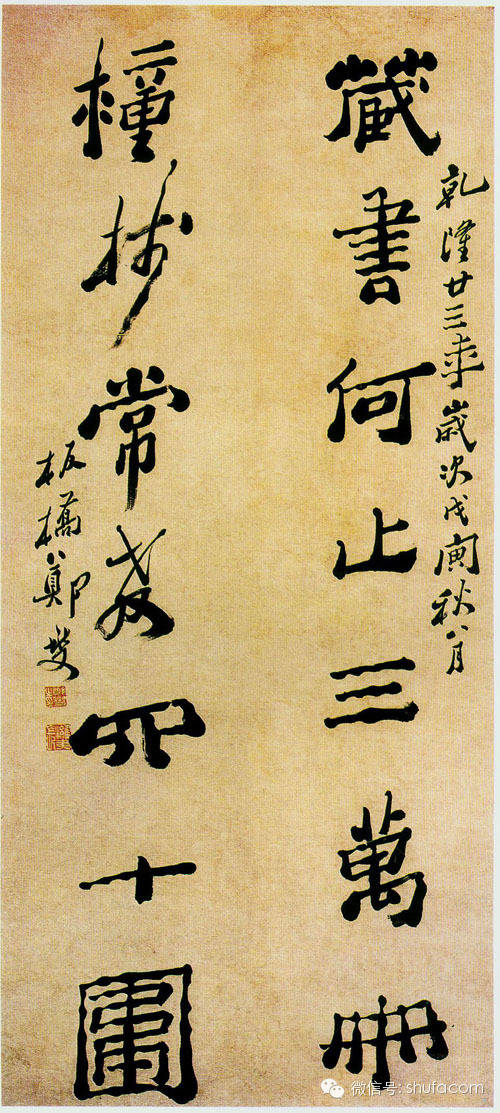 乾隆廿三年歲次戊寅秋八月
藏書何止三萬冊
種樹常教四十圍
板橋鄭燮
微信号: shufacom